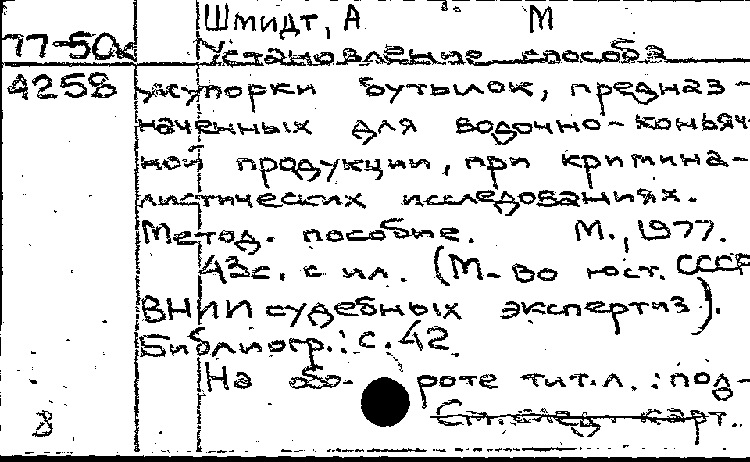 Шмидт, А М
77-50к Установление способа
4258 укупорки бутылок, предназ-
наченных для водочно-коньяч-
ной продукции, при кримина-
листических исследованиях.
Метод. пособие. М., 1977.
43с. с ил. (М-во юст. СССР
ВНИИ судебных экспертиз).
Библиогр.: с. 42.
На обо- роте тит.л.: под-
См. след. карт.
8